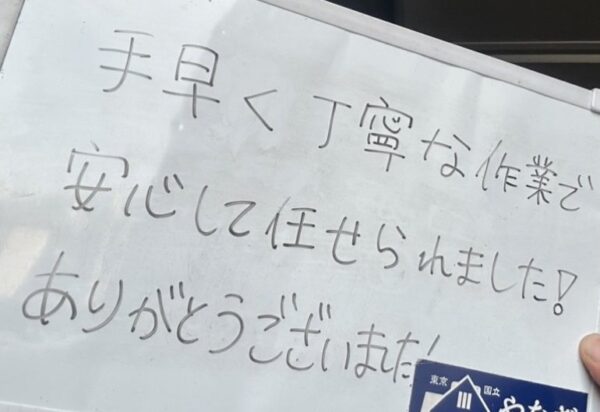 手早く丁寧な作業で
安心して任せられました!
ありがとうございました!
東京
国立